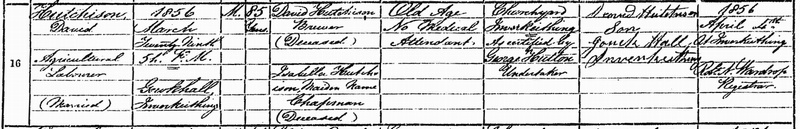 16
Hutchison
David
Agricultural
Labourer
(Married)
1856
March
Twenty Ninth
5h. P.M.
Gowkhall,
Inverkeithing
M.
85
Years
David Hutchison
Brewer
(Deceased)
Isabella Hutchi
son, Maiden Name
Chapman
(Deceased)
Old Age
No Medical
Attendant.
Churchyard
Inverkeithing
As certified by
George Hutton
Undertaker
Hutchison
Son,
Hall,
Inverkeithing
1856
April
At Inverkeithing
Robt. Wardrop
Registrar.